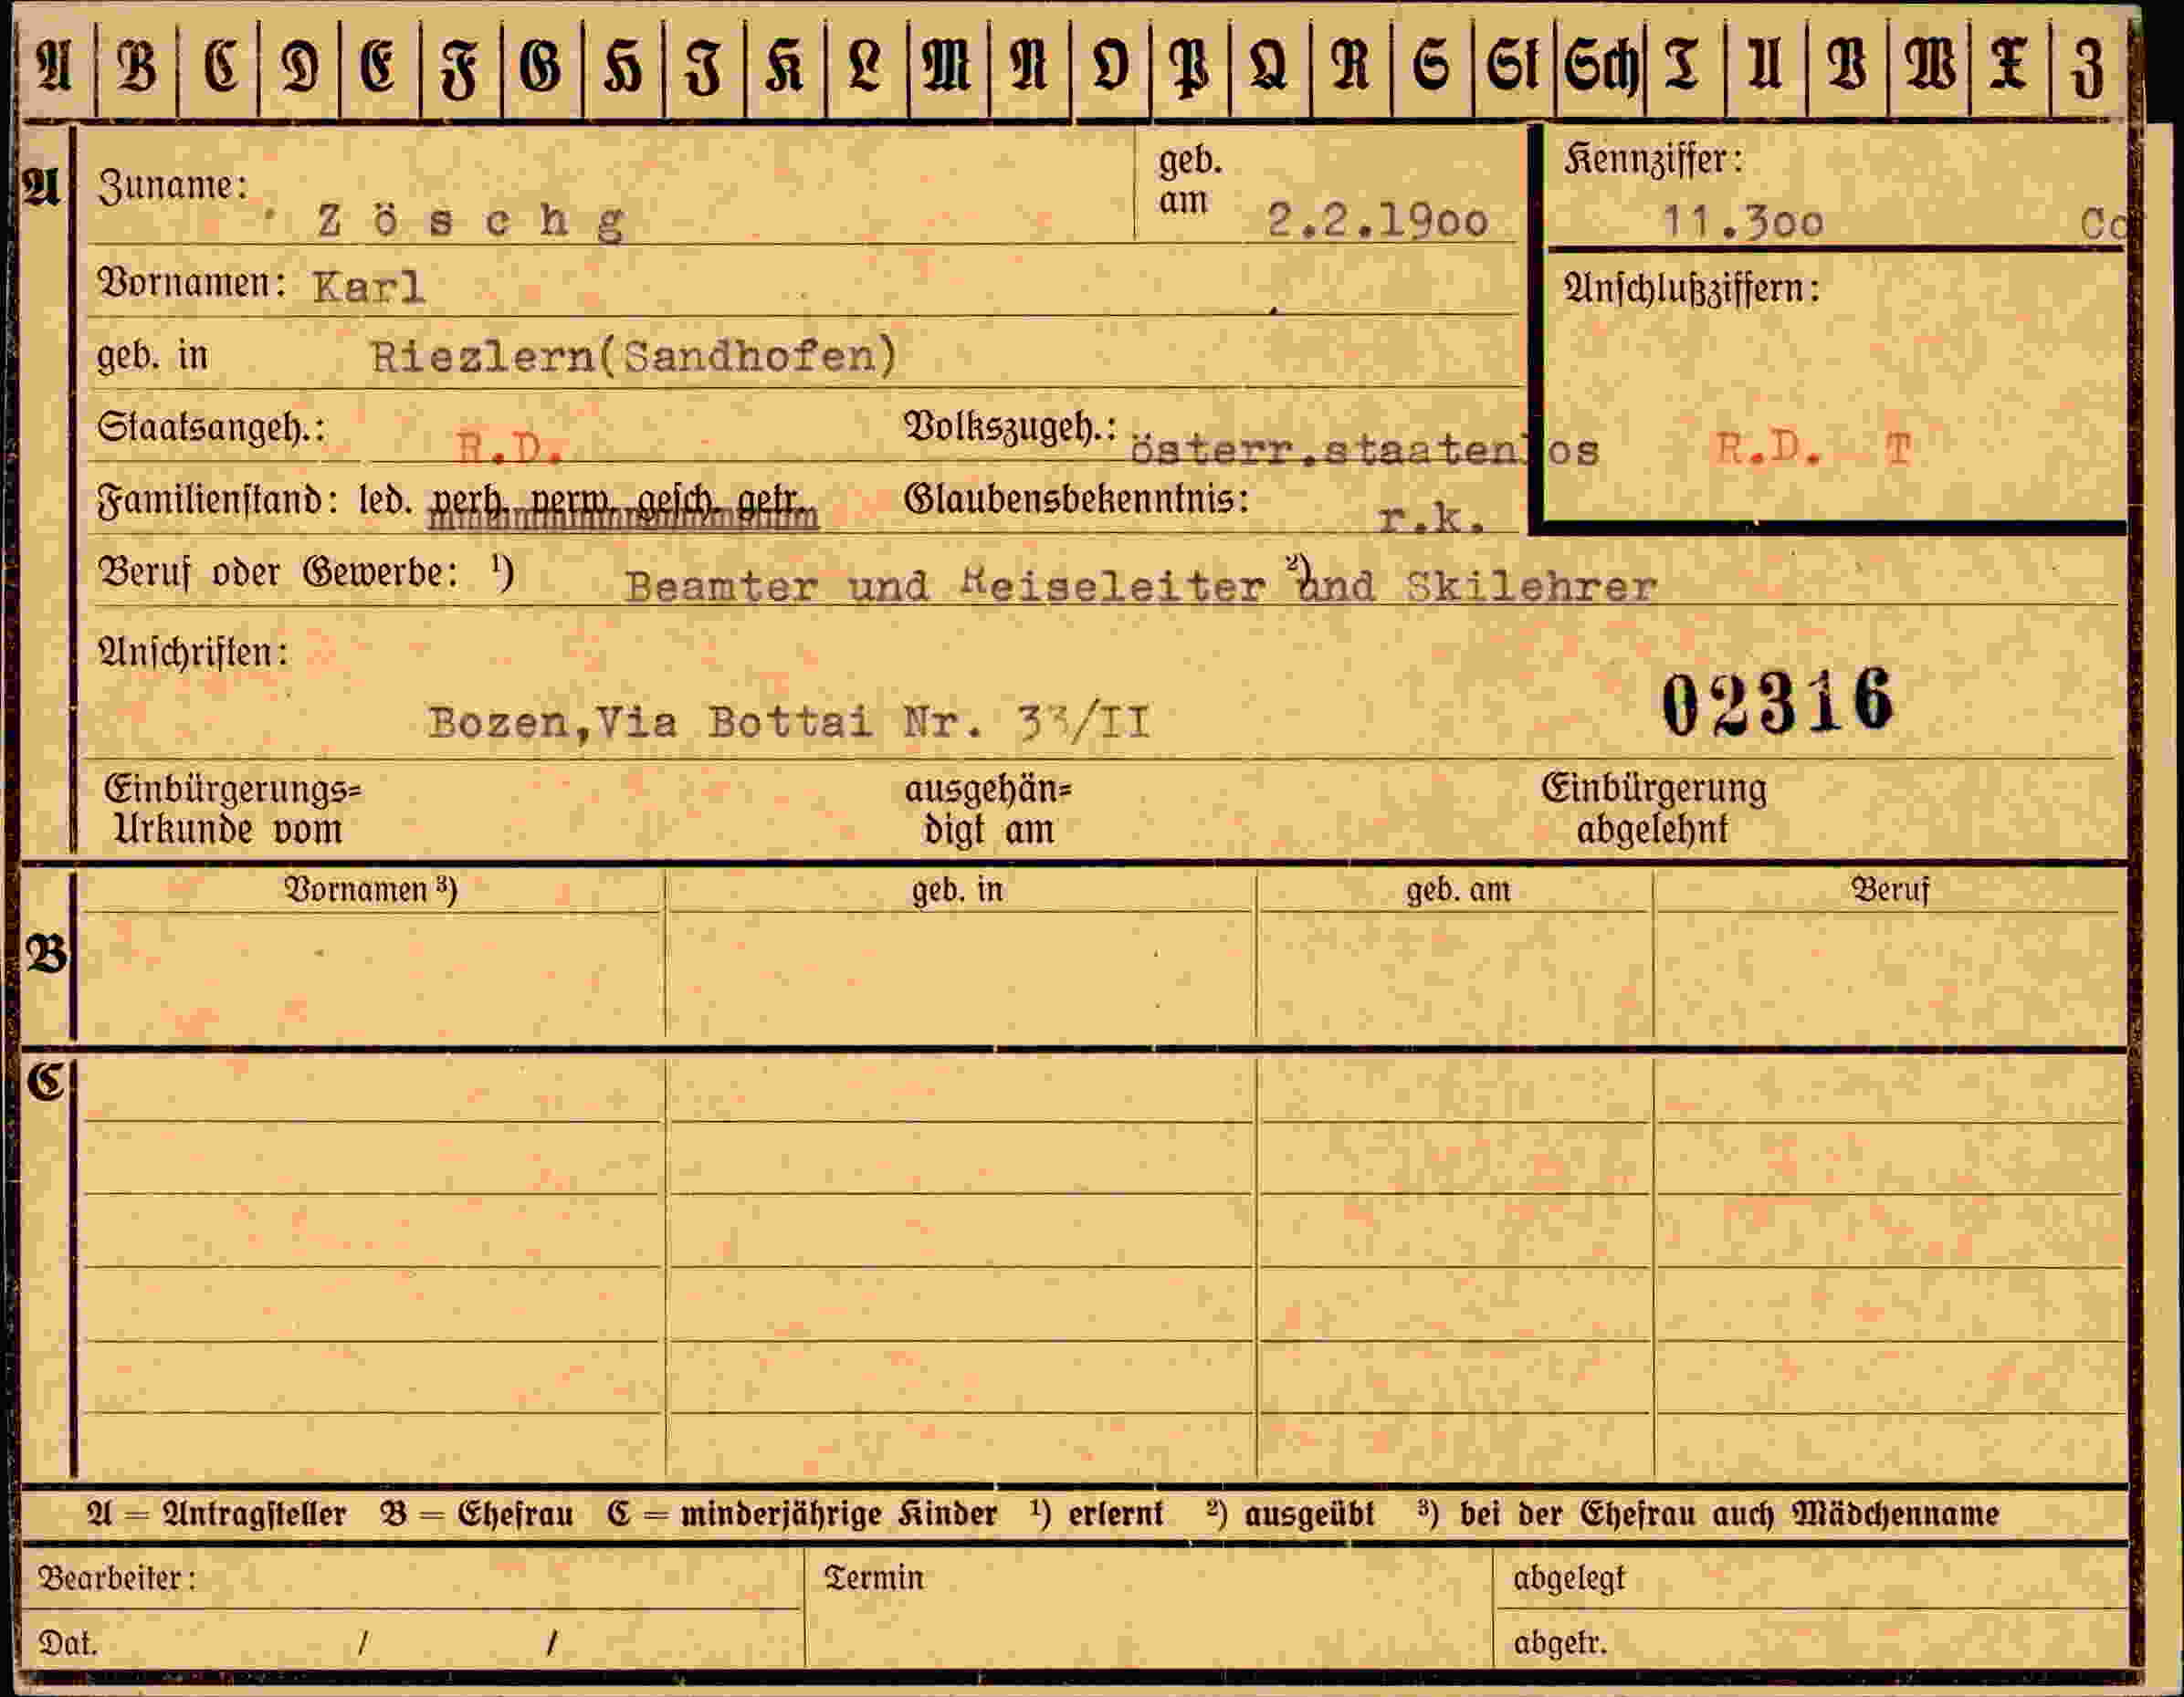 A B C D E F G H I K L M N O P Q R S St Sch T U V W X Z
A Zuname: Zöschg geb. am 2.2.1900 Kennziffer: 11.300
Vornamen: Karl Anschlußziffern:
geb. in Riezlern(Sandhofen)
Staatsangeh.: R.D. Volkszugeh.: österr.staatenlos R.D. T
Familienstand: led. verh. verw. gesch. getr. Glaubensbekenntnis: r.k.
Beruf oder Gewerbe: ¹) Beamter und Reiseleiter ²) und Skilehrer
Anschriften:
02316
Bozen,Via Bottai Nr. 33/II
Einbürgerungs= ausgehän= Einbürgerung
Urkunde vom digt am abgelehnt
Vornamen ³) geb. in geb. am Beruf
B
C
A = Antragsteller B = Ehefrau C = minderjährige Kinder ¹) erlernt ²) ausgeübt ³) bei der Ehefrau auch Mädchenname
Bearbeiter: Termin abgelegt
Dat. / / abgetr.